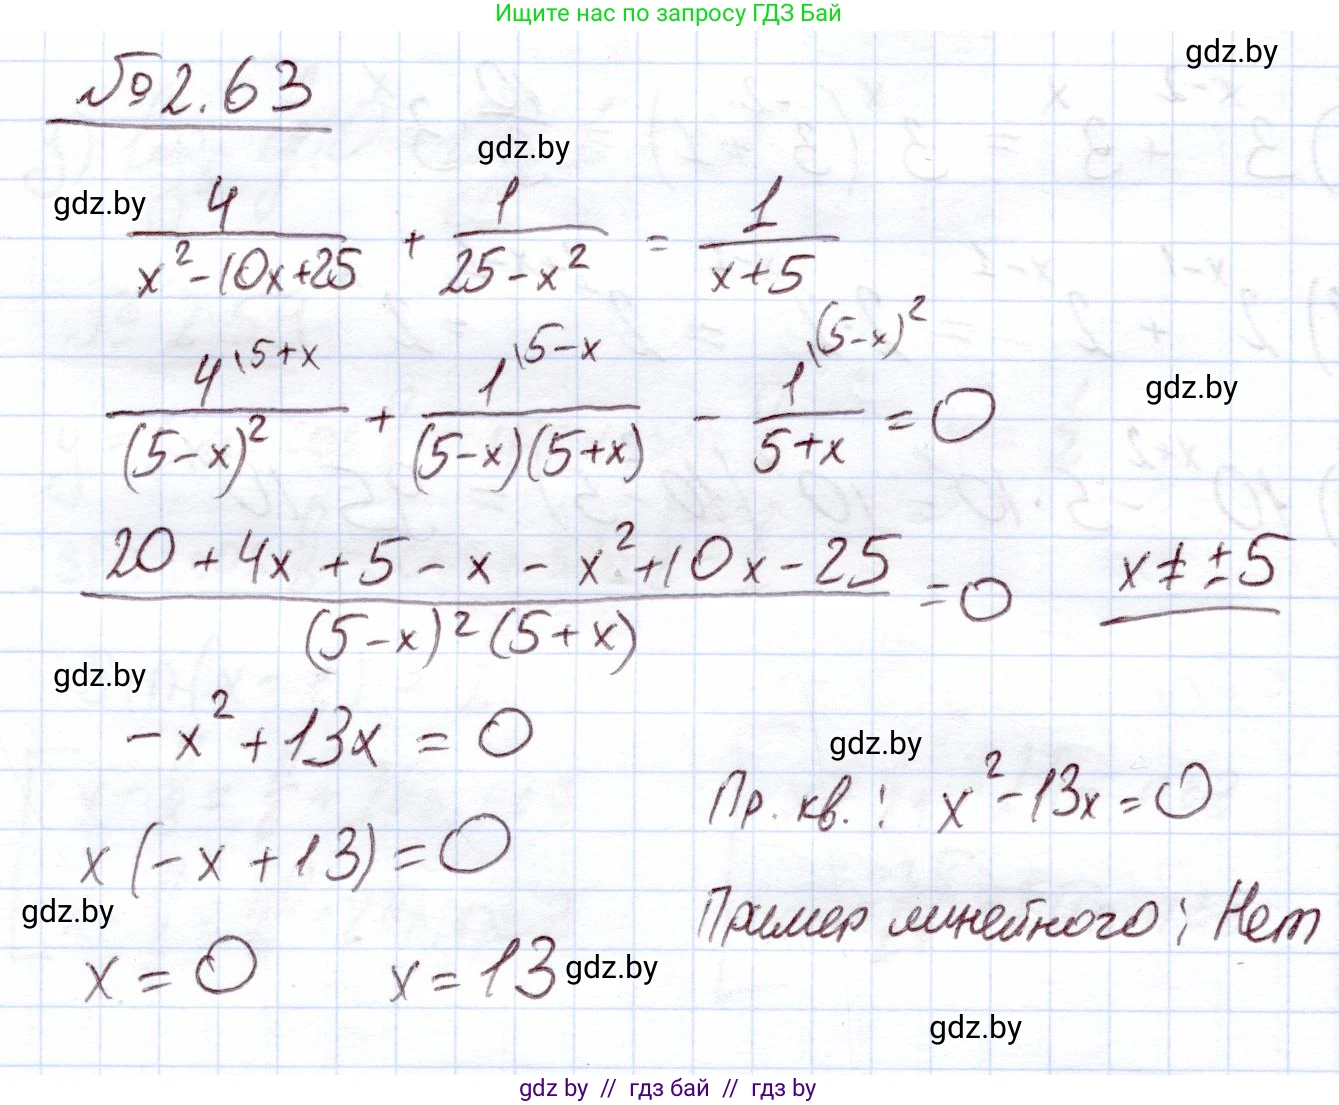 Ищите нас по запросу ГДЗ Бай
gdz.by
№2.63
gdz.by
gdz.by
4/(x²-10x+25) + 1/(25-x²) = 1/(x+5)
4\5+x/(5-x)² + 1\5-x/(5-x)(5+x) - 1\(5-x)²/5+x = 0
gdz.by
20+4x+5-x-x²+10x-25/(5-x)²(5+x) = 0    x≠±5
gdz.by
-x²+13x=0
gdz.by
Пр. кв.: x²-13x=0
x(-x+13)=0
gdz.by
Пример линейного: Нет
x=0    x=13
gdz.by
gdz.by
gdz by // гдз бай // гдз by